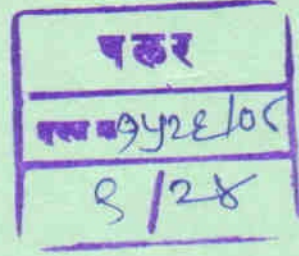 पकर
१५२६/०८
९/२४